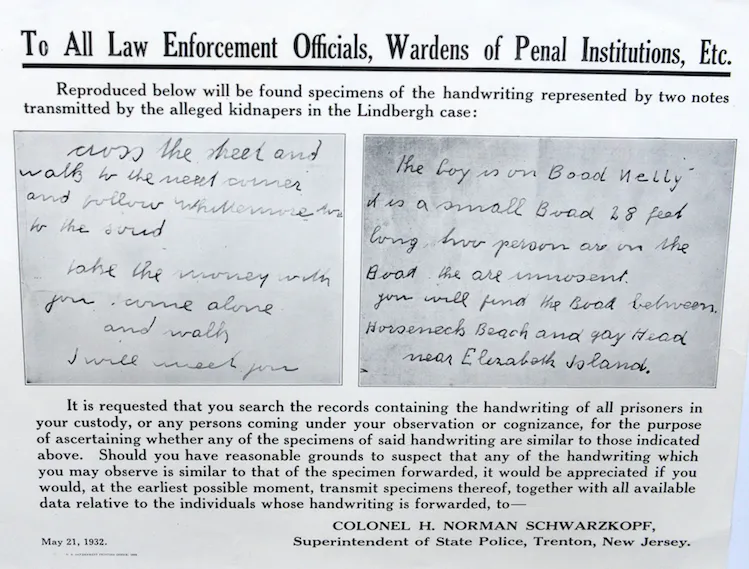 To All Law Enforcement Officials, Wardens of Penal Institutions, Etc.
Reproduced below will be found specimens of the handwriting represented by two notes
transmitted by the alleged kidnapers in the Lindbergh case:
cross the street and
walk to the next corner
and follow whittemore
to the soud
take the money with
you. come alone
and walk
I will meet you
the boy is on Boad Nelly
it is a small Boad 28 feet
long, two person are on the
Boad. the are innosent.
you will find the Boad between
Horseneck Beach and gay Head
near Elizabeth Island.
It is requested that you search the records containing the handwriting of all prisoners in
your custody, or any persons coming under your observation or cognizance, for the purpose
of ascertaining whether any of the specimens of said handwriting are similar to those indicated
above. Should you have reasonable grounds to suspect that any of the handwriting which
you may observe is similar to that of the specimen forwarded, it would be appreciated if you
would, at the earliest possible moment, transmit specimens thereof, together with all available
data relative to the individuals whose handwriting is forwarded, to—
COLONEL H. NORMAN SCHWARZKOPF,
Superintendent of State Police, Trenton, New Jersey.
May 21, 1932.